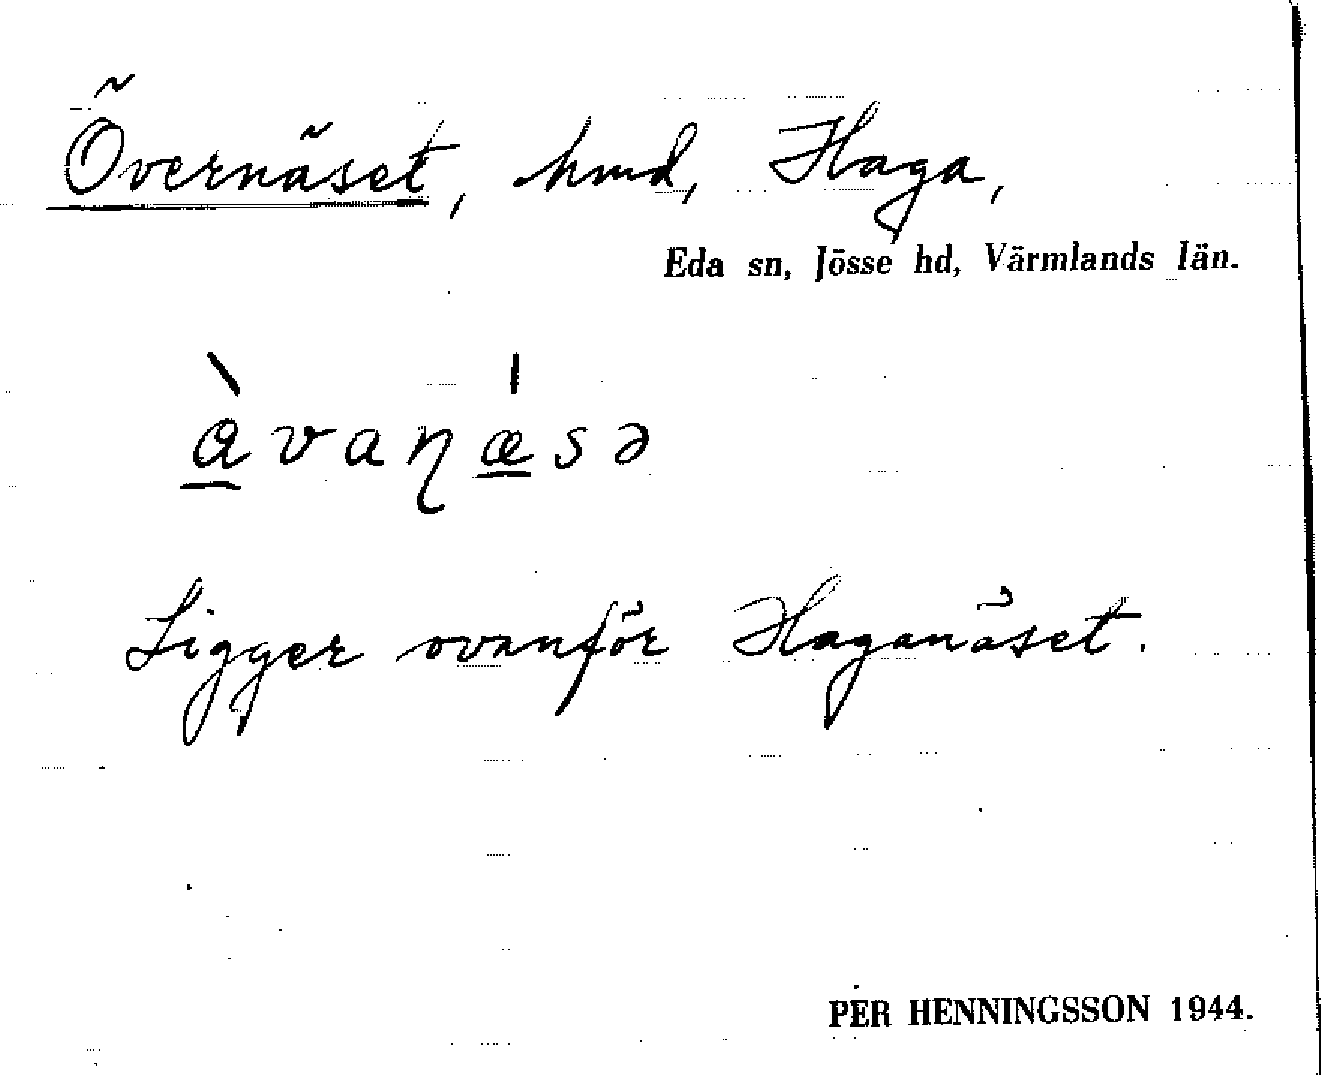 Övernäset, hmd, Haga,
Eda sn, Jösse hd, Värmlands län.
à̱vaɳǽ̱sə
Ligger ovanför Haganäset.
PER HENNINGSSON 1944.